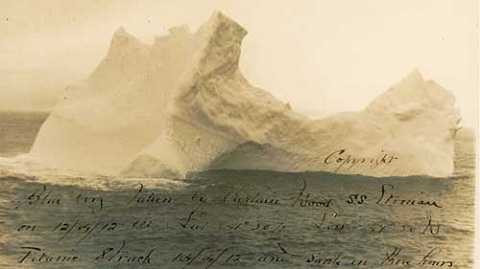 Copyright
Blue berg Taken by Captain Wood SS Etonian
on 12/4/12 in Lat
Titanic Struck 14/4/12 and sank in three hours